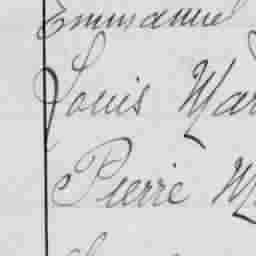 Emmanuel
Louis Mar
Pierre M